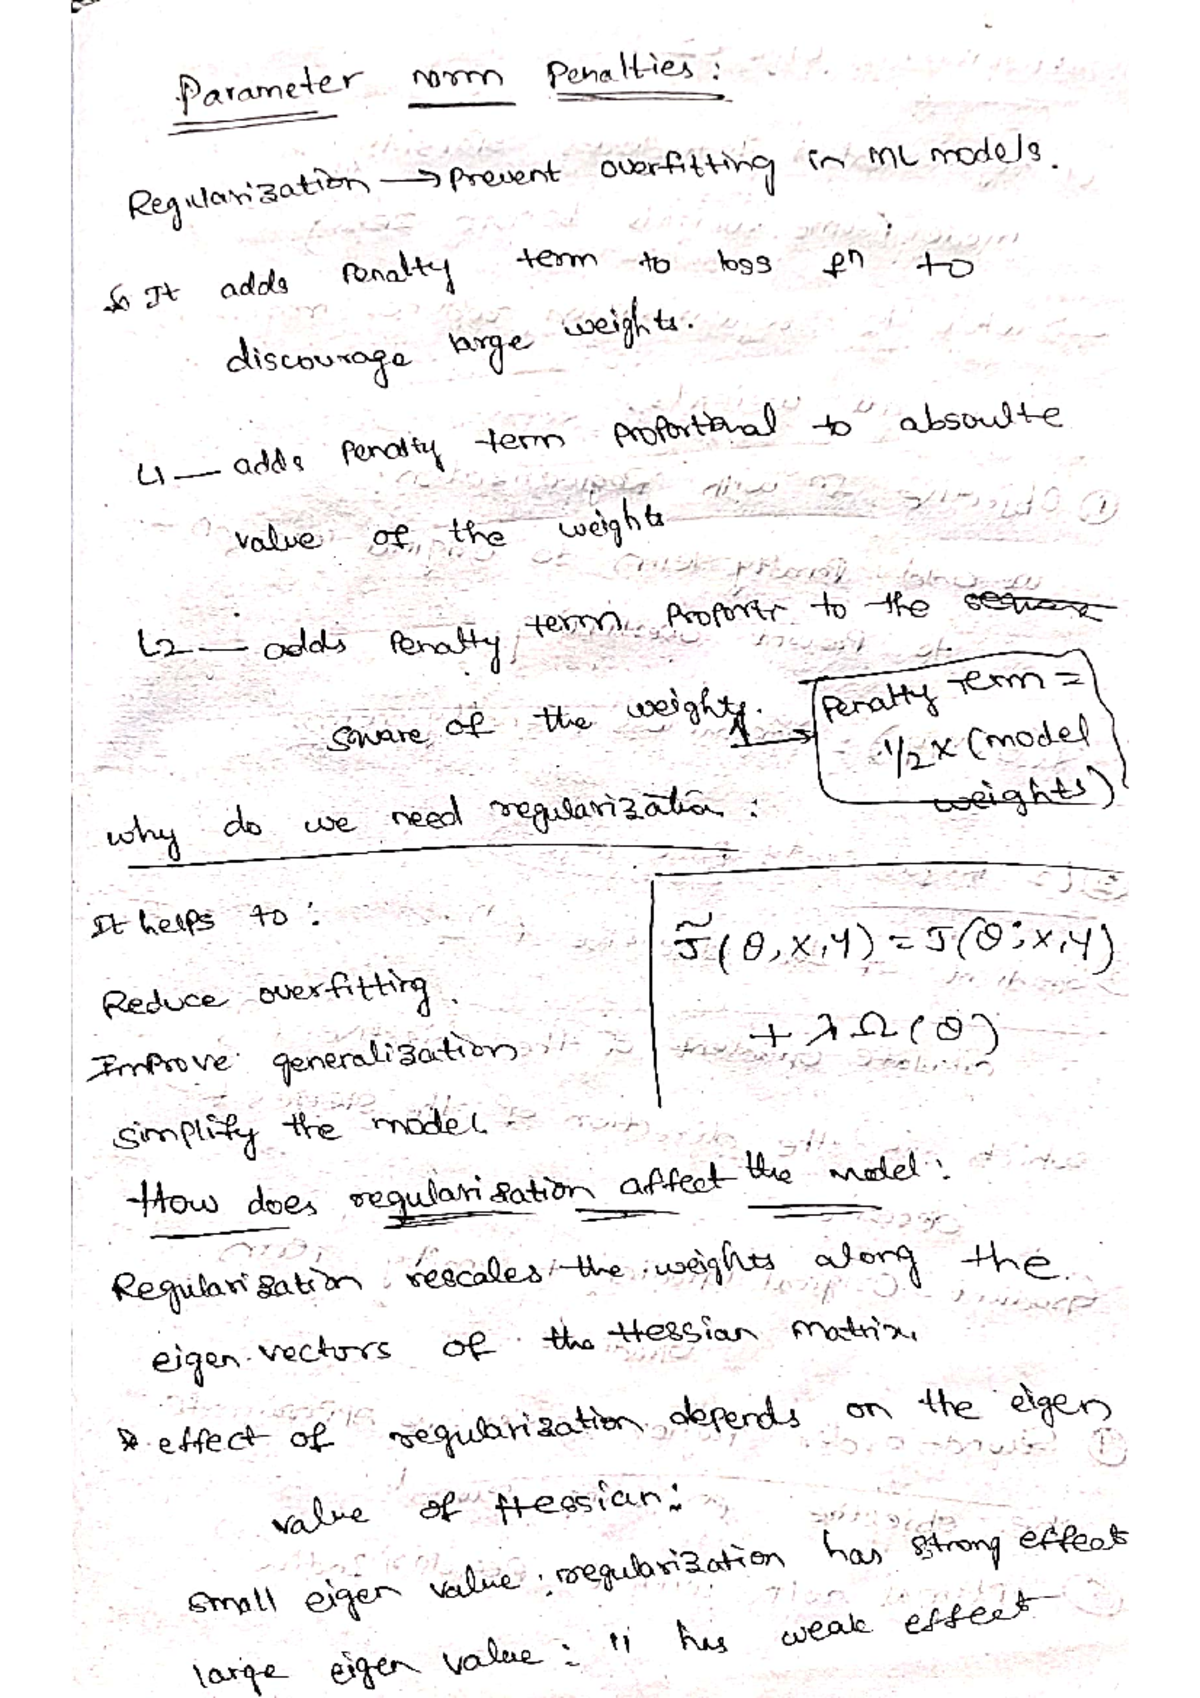 Parameter norm Penalties:
Regularization → Prevent overfitting in ML models.
It adds Penalty term to loss fn to
discourage large weights.
L1 — adds Penalty term Proportional to absoulte
value of the weights
L2 — adds Penalty term Proportr to the square
square of the weights. → Penalty Term =
1/2 x (model
weights)
why do we need regularization:
It helps to:
Reduce overfitting.
Improve generalization
simplify the model.
J̃(θ,X,Y) = J(θ;X,Y)
+ λΩ(θ)
How does regularisation affect the model:
Regularization rescales the weights along the
eigen vectors of the Hessian matrix.
* effect of regularization depends on the eigen
value of Hessian:
small eigen value: regularization has strong effect
large eigen value: " has weak effect